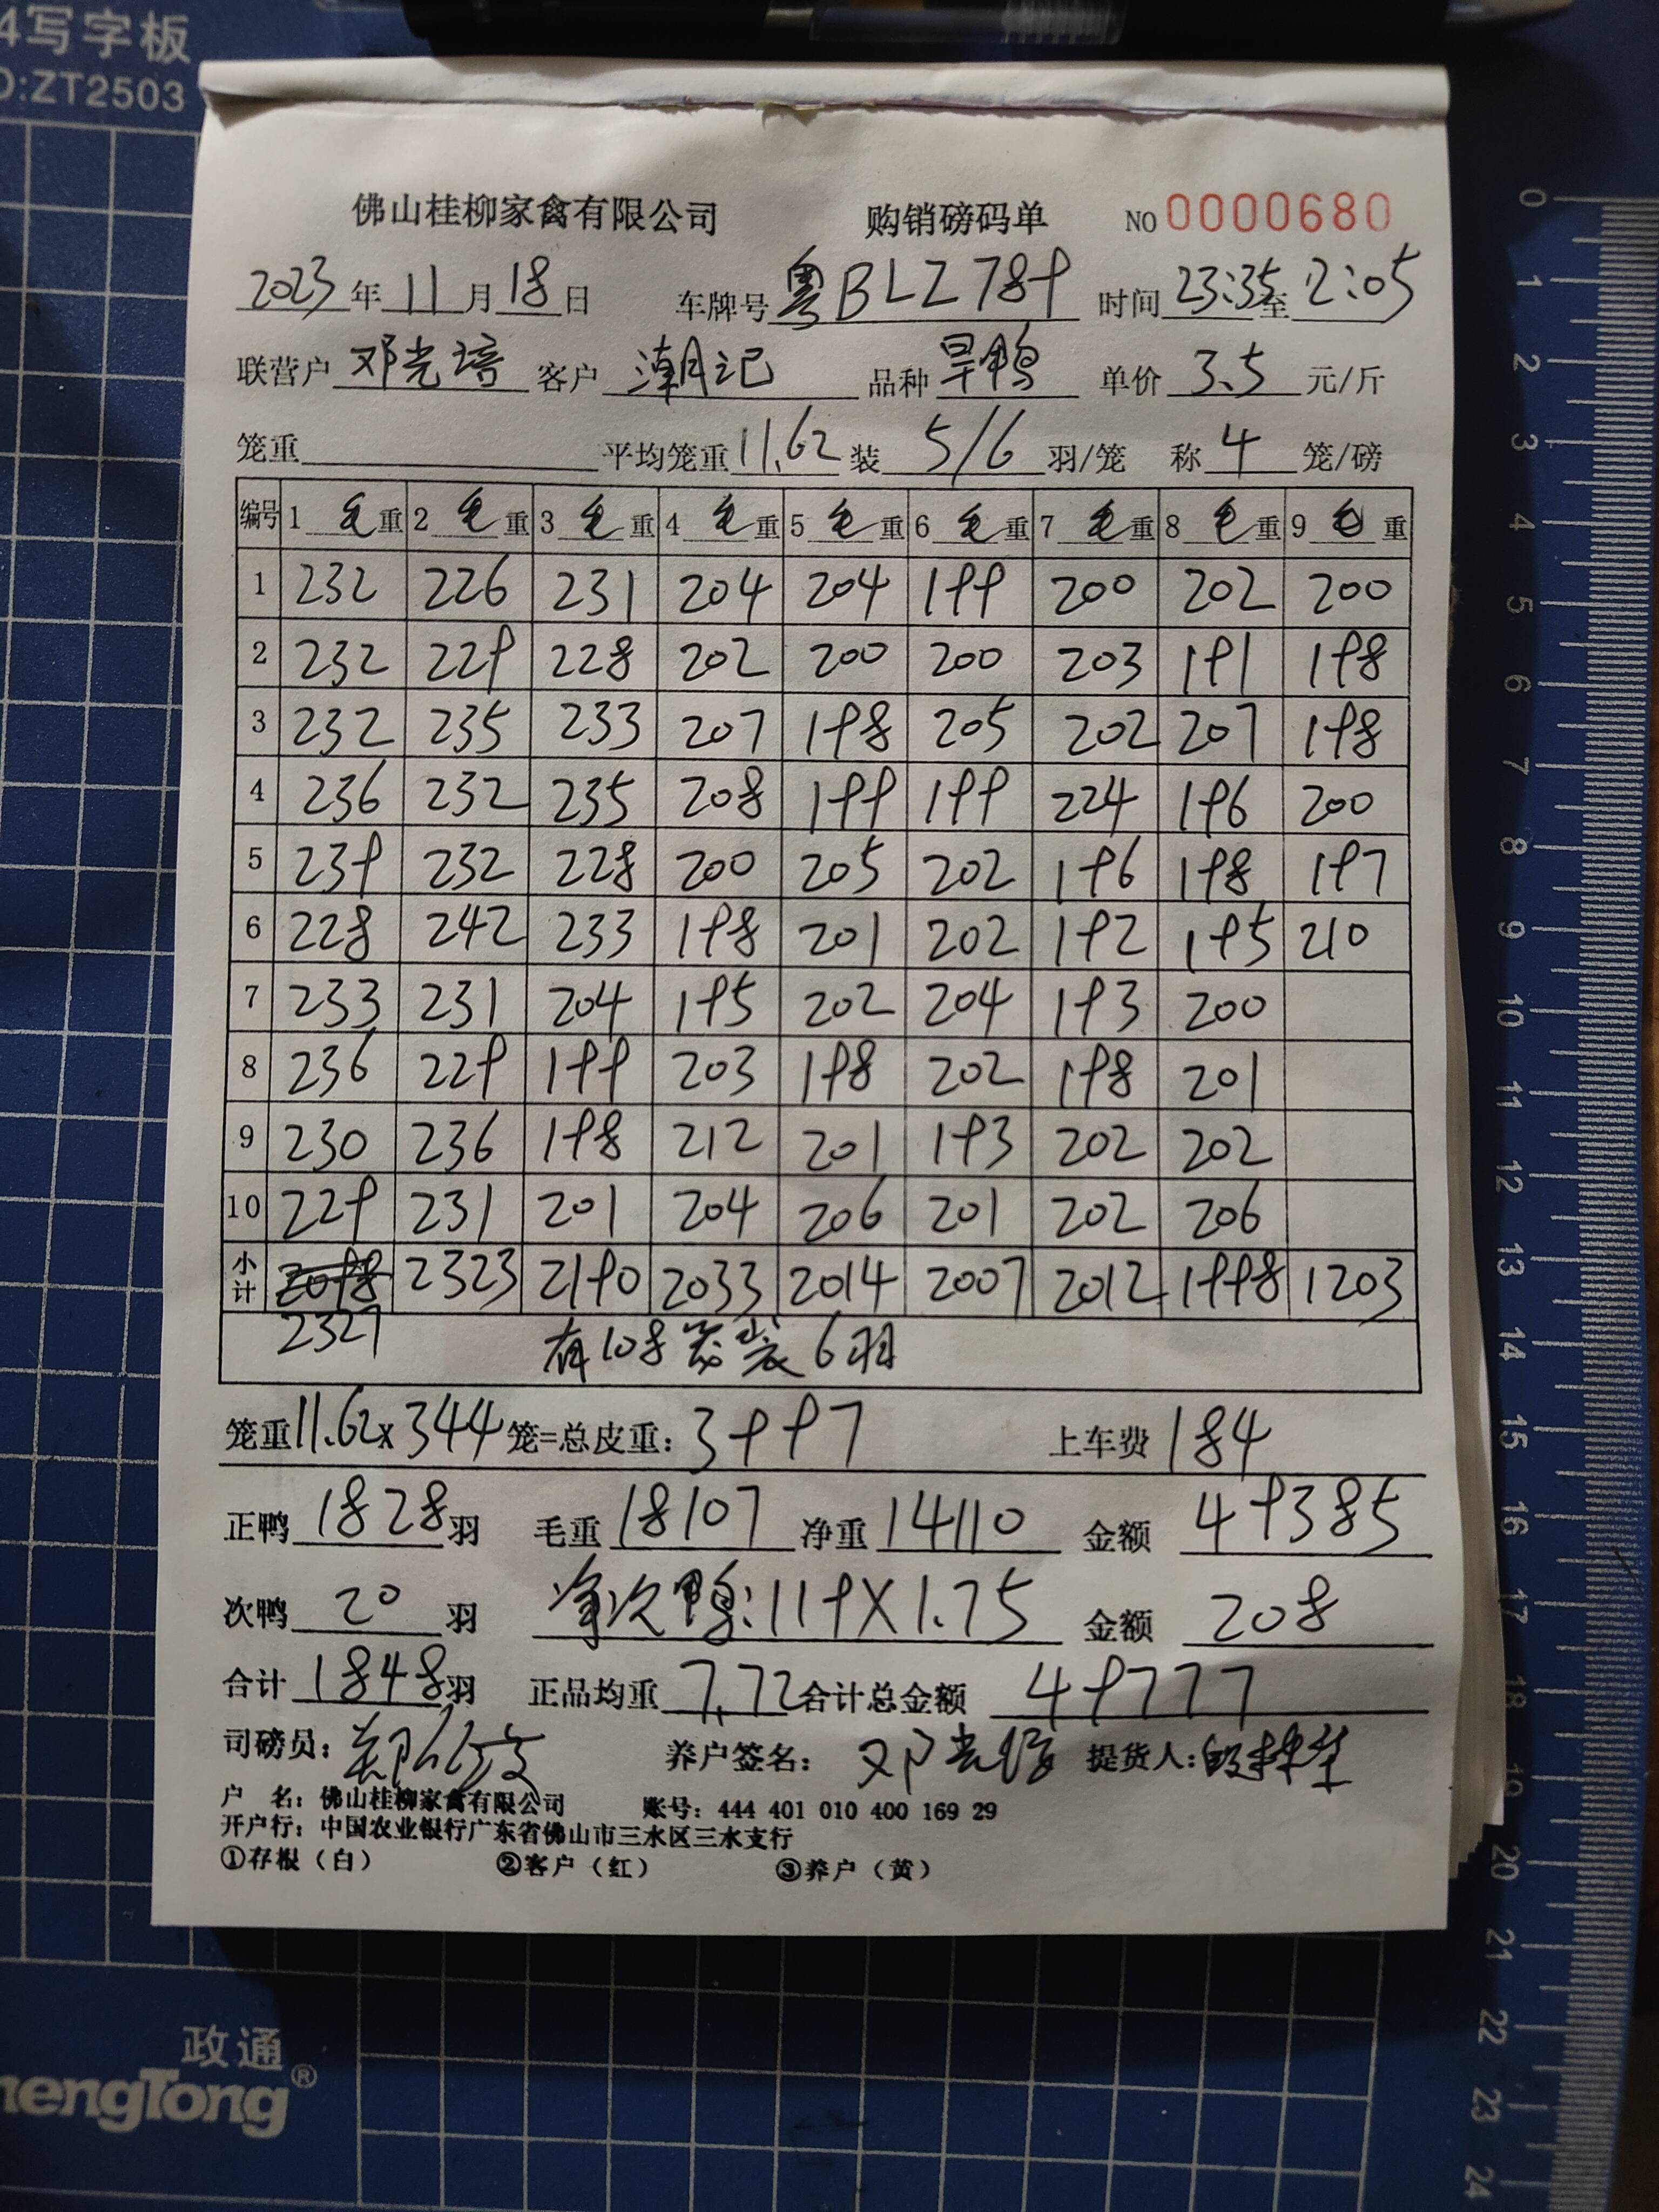 4写字板
O:ZT2503
佛山桂柳家禽有限公司 购销磅码单 NO 0000680
2023年11月18日 车牌号 粤BLZ789 时间 23:35至2:05
联营户 邓光培 客户 潮记 品种 旱鸭 单价 3.5 元/斤
笼重 平均笼重 11.62 装 5/6 羽/笼 称 4 笼/磅
编号 1 毛重 2 毛重 3 毛重 4 毛重 5 毛重 6 毛重 7 毛重 8 毛重 9 毛重
1 232 226 231 204 204 199 200 202 200
2 232 229 228 202 200 200 203 191 198
3 232 235 233 207 198 205 202 207 198
4 236 232 235 208 199 199 224 196 200
5 239 232 228 200 205 202 196 198 197
6 228 242 233 198 201 202 192 195 210
7 233 231 204 195 202 204 193 200
8 236 229 199 203 198 202 198 201
9 230 236 198 212 201 193 202 202
10 229 231 201 204 206 201 202 206
小计 2098 2323 2190 2033 2014 2007 2012 1998 1203
2327 有108笼装6羽
笼重11.62x344笼=总皮重: 3997 上车费 184
正鸭 1828 羽 毛重 18107 净重 14110 金额 49385
次鸭 20 羽 净次鸭:119X1.75 金额 208
合计 1848 羽 正品均重 7.72 合计总金额 49777
司磅员: 养户签名: 邓光培 提货人:
户 名: 佛山桂柳家禽有限公司 账号: 444 401 010 400 169 29
开户行: 中国农业银行广东省佛山市三水区三水支行
①存根（白） ②客户（红） ③养户（黄）
政通
hengTong®
0
1
2
3
4
5
6
7
8
9
10
11
12
13
14
15
16
17
18
19
20
21
22
23
24